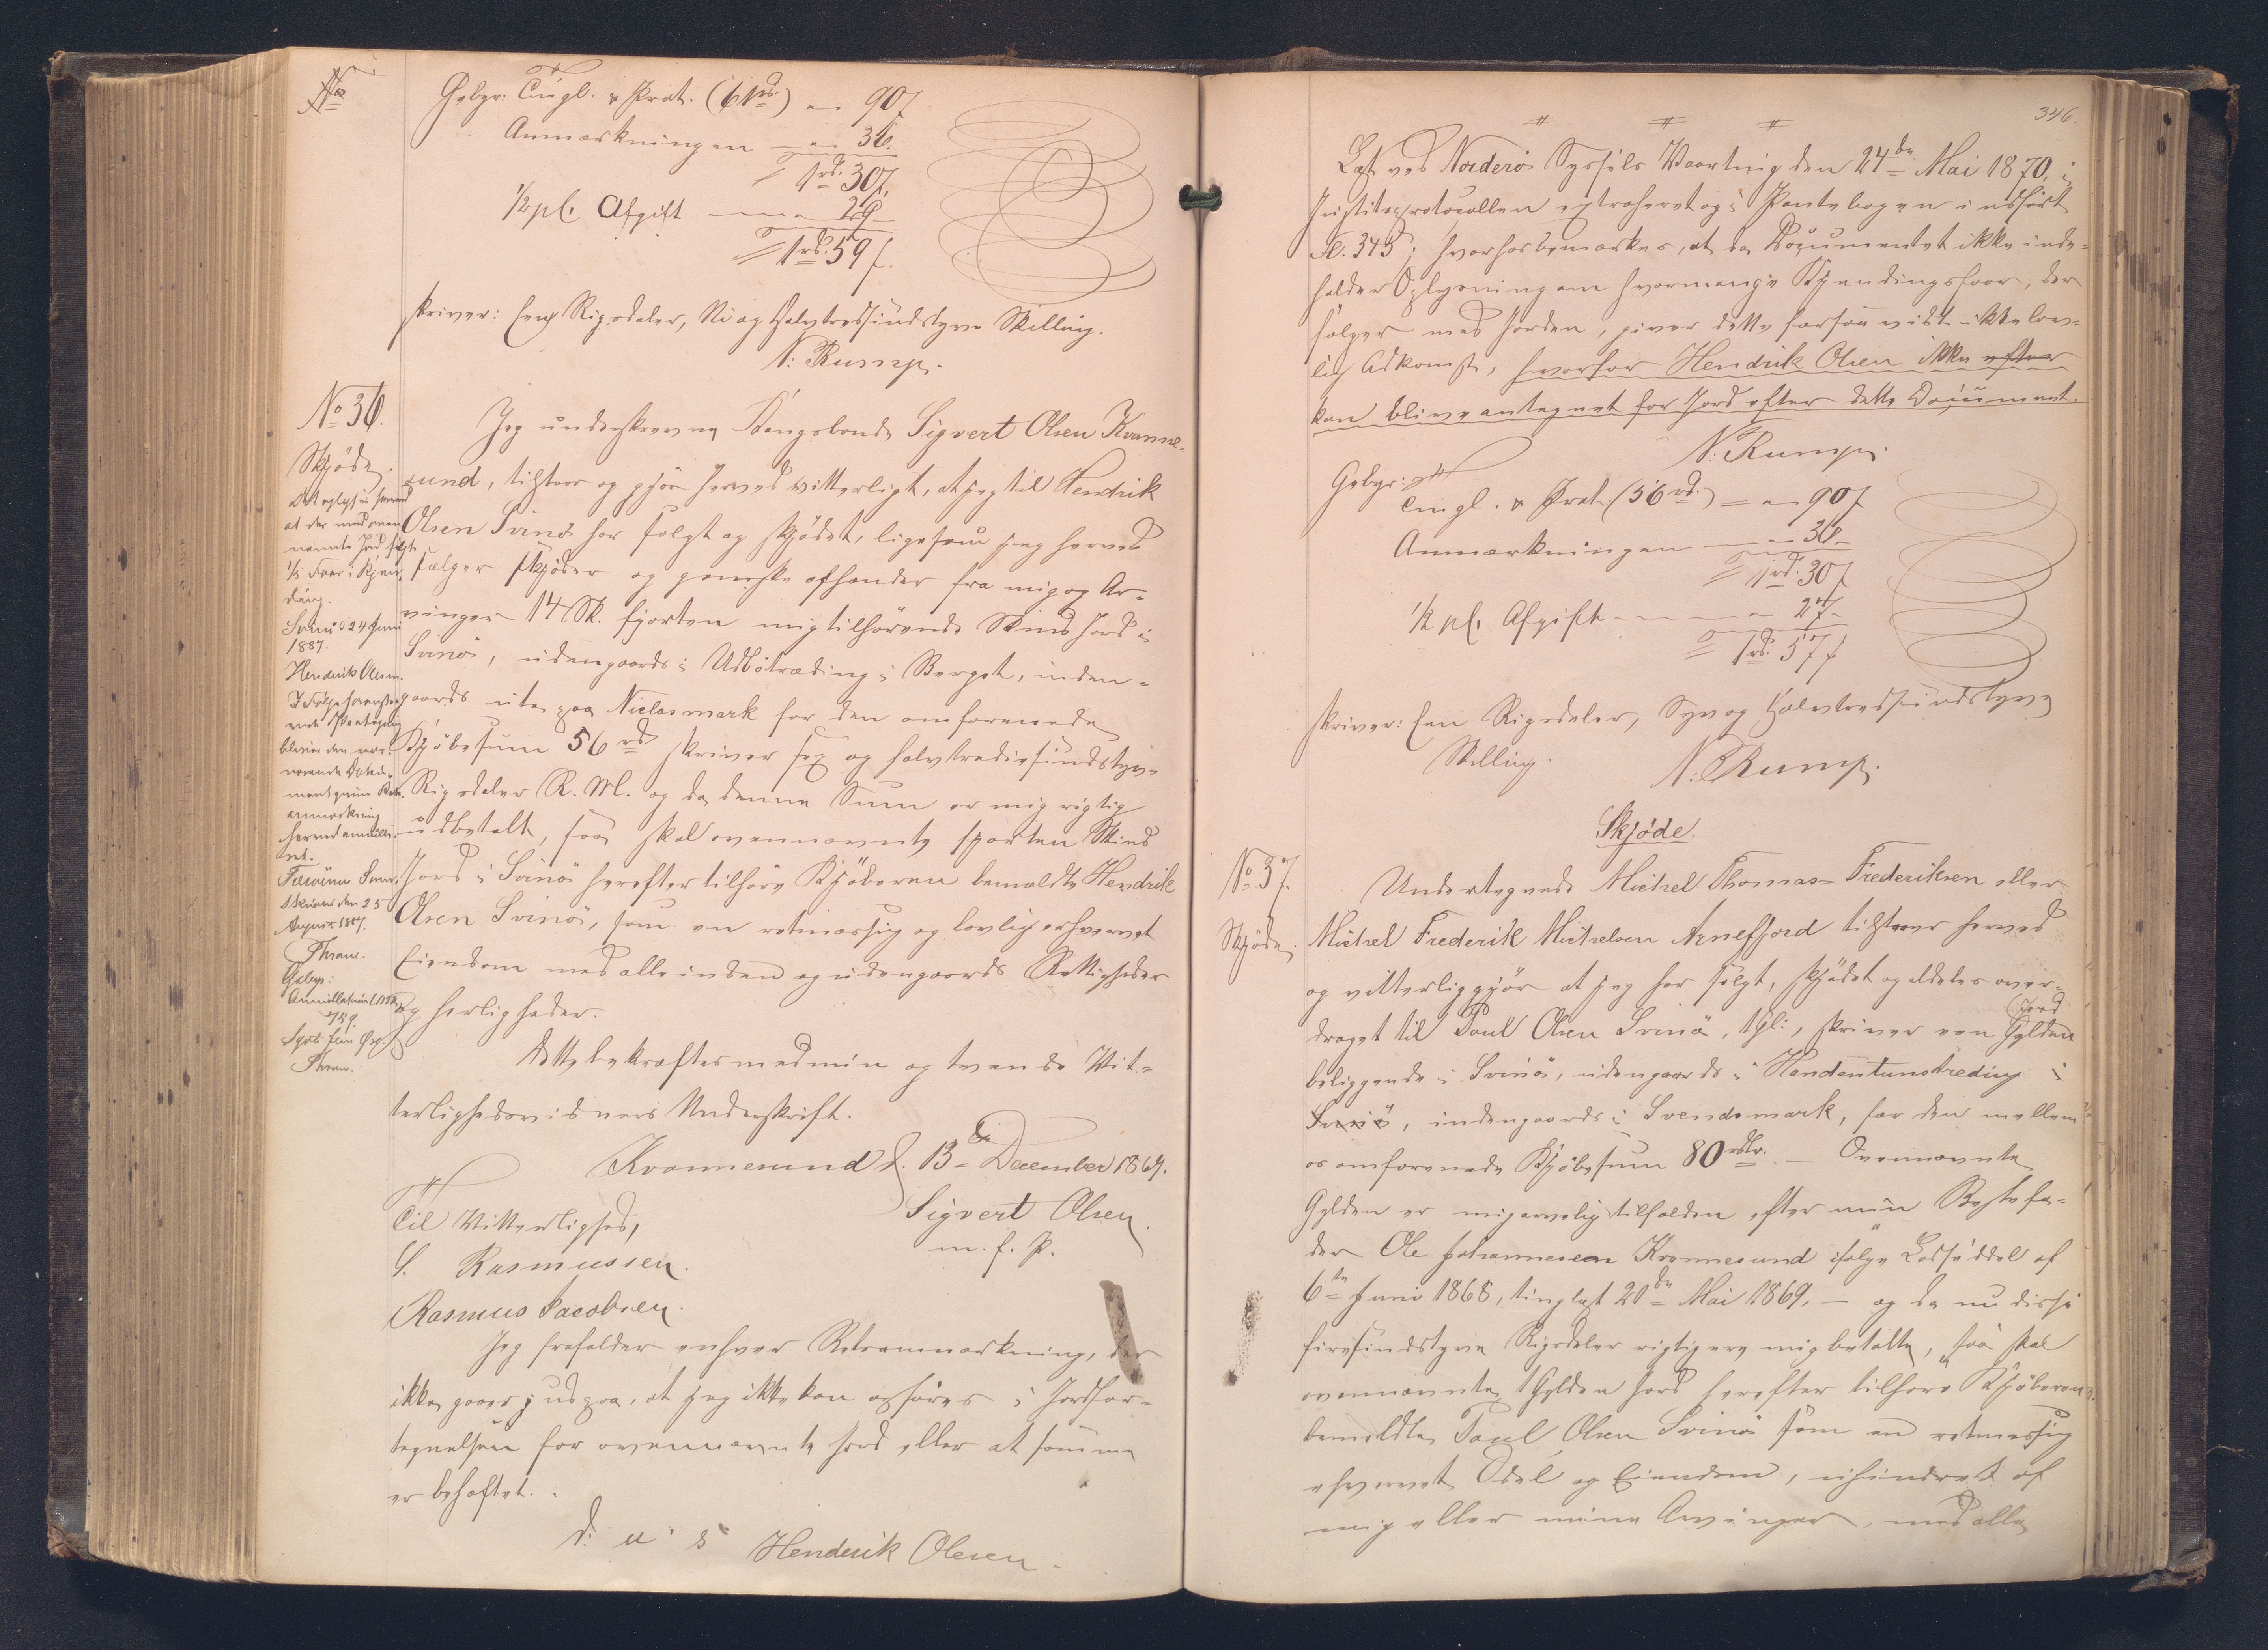 No
Gebyr: Tingl. & Prot. (61 rd.) " 90 ſ
Anmærkningen — " 36.
1 rd. 30 ſ.
1/2 pCt. Afgift — " 29
1 rd. 59 ſ.
skriver: Een Rigsdaler, Ni og Halvtredsindstyve Skilling.
N: Rump.
No 36.
Skjöde.
Jeg underskrevne Kongsbonde Sigvert Olsen Kvanne-
sund, tilstaar og gjör herved vitterligt, at jeg til Hendrik
Olsen Svinö har solgt og skjödet, ligesom jeg herved
sælger skjöder og ganske afhænder fra mig og Ar-
vinger 14 Sk. fjorten mig tilhörende Skind Jord i
Svinö, udengaards i Udbötræding i Berget, inden-
gaards ute paa Niclasmark for den omforenede
Kjöbesum 56 rd skriver sex og halvtredsindstyve
Rigsdaler R. M. og da denne Sum er mig rigtig
udbetalt, saa skal ovennævnte fjorten Skind
Jord i Svinö herefter tilhöre Kjöberen bemeldte Hendrik
Olsen Svinö, som en retmæssig og lovlig erhvervet
Eiendom med alle inden og udengaards Rettigheder
og Herligheder.
Dette bekræftes med min og tvende Vit-
terlighedsvidners Underskrift.
Kvannesund d. 13de December 1869.
Sigvert Olsen.
m. f. P.
Til Vitterlighed,
S. Rasmussen.
Rasmus Jacobsen.
Jeg frafalder enhver Retsanmærkning, der
ikke gaaer ud paa, at jeg ikke kan opföres i Jordfor-
tegnelsen for ovennævnte Jord eller at samme
er behæftet.
d: u: s Henderik Olesen
Det oplyses herved
at der med oven
nævnte Jord følger
1/2 Faar i Kjen-
ding.
Svinö 24 Juni
1887.
Henderik Olesen.
I Følge foranstaa-
ende Paategning
bliver den nær-
værende Doku-
ment givne Ret-
anmærkning
herved annulle-
ret.
Færöerne Soren-
skriveri den 25
August 1887.
Gebyr:
346.
Læst ved Norderö Syssels Vaarting den 24de Mai 1870, i
Justitsprotocollen extraheret og i Pantebogen indfört
Fol. 345; hvorhos bemærkes, at da Documentet ikke inde-
holder Oplysning om hvormange Kjendingsfaar, der
fölger med Jorden, giver dette forsaavidt ikke lov-
lig Adkomst, hvorfor Hendrik Olsen ikke efter
kan blive antegnet for Jord efter dette Document.
N: Rump.
Gebyr:
Tingl. & Prot. (56 rd.) — " 90 ſ
Anmærkningen — " 36
1 rd. 30 ſ
1/2 pCt. Afgift — " 27
1 rd. 57 ſ
skriver: Een Rigsdaler, Syv og Halvtredsindstyve
Skilling.
N: Rump.
Skjöde.
No 37.
Skjöde.
Undertegnede Michel Thomas Frederiksen eller
Michel Frederik Michelsen Arnefjord tilstaar herved
og vitterliggjör at jeg har solgt, skjödet og aldeles over-
draget til Poul Olsen Svinö, 1 Gl:, skriver een Gylden
Jord
beliggende i Svinö, udengaards i Handentunstreding i
Svinö, indengaards i Svendsmark, for den mellem
os omforenede Kjöbesum 80 rdlr. — Ovennævnte
Gylden er mig arvelig tilfalden efter min Bestefa-
der Ole Johannesen Kvannesund ifølge Lodseddel af
6te Juni 1868, tinglæst 21de Mai 1869, — og da nu disse
firesindstyve Rigsdaler rigtig ere mig betalte, saa skal
ovennævnte 1 Gylden Jord herefter tilhöre Kjöberen
bemeldte Poul Olsen Svinö som en retmæssig
ehvervet Odel og Eiendom, uhindret af
mig eller mine Arvinger, med alle